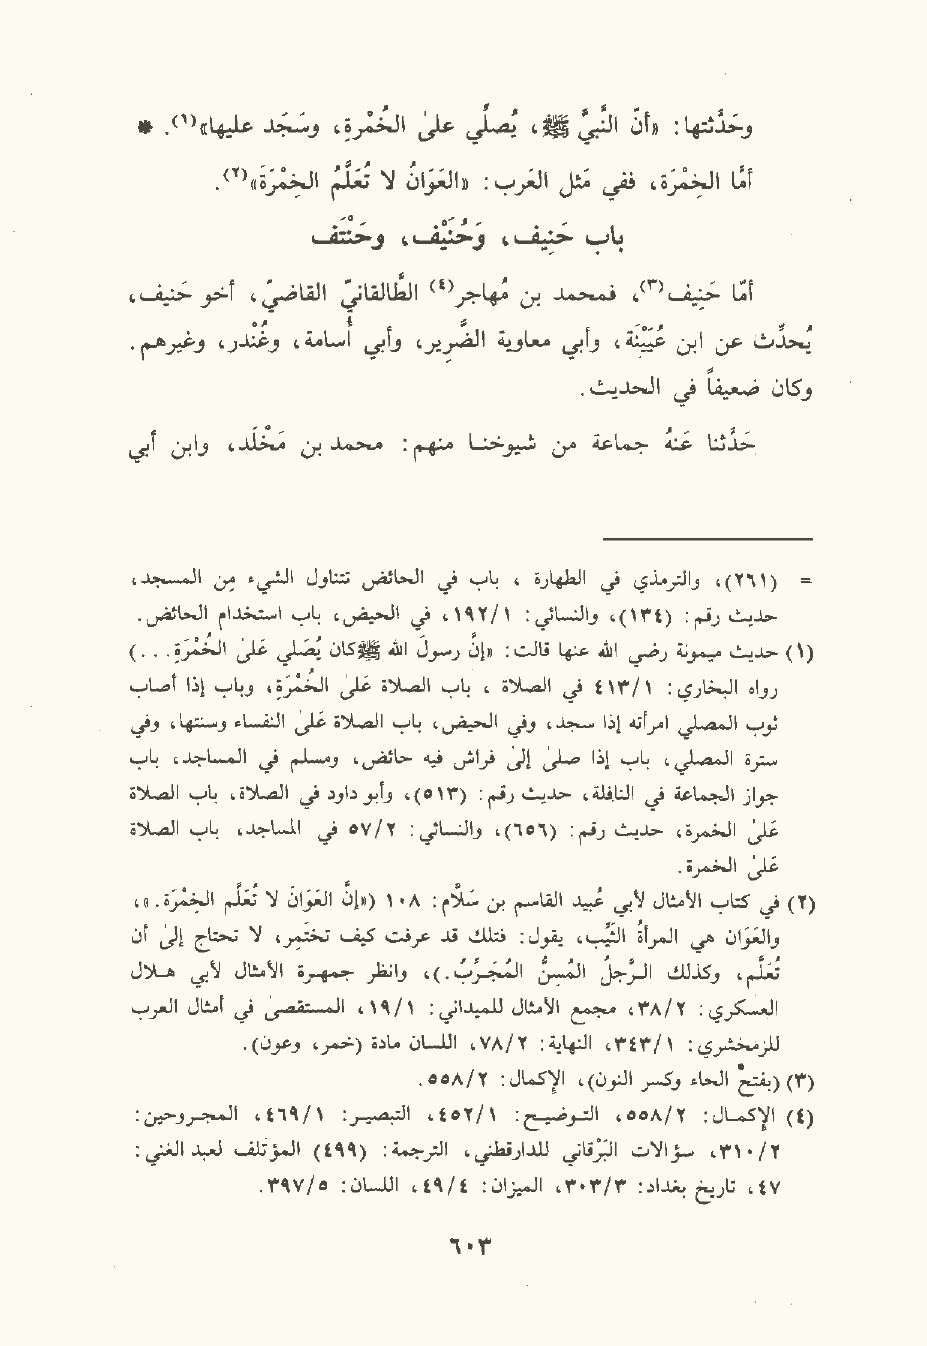 وحَدَّثتها: «أنّ النَّبيَّ ﷺ، يُصَلِّي على الخُمْرةِ، وسَجَد عليها»(١). *
أمَّا الخِمْرَة، ففي مثَل العَرب: «العَوَانُ لا تُعَلَّمُ الخِمْرَةَ»(٢).
باب حَنِيف، وَحُنَيْف، وحَنْتَف
أمّا حَنِيف(٣)، فمحمد بن مُهاجر(٤) الطَّالقانيّ القاضيّ، أخو حَنيف،
يُحدِّث عن ابن عُيَيْنَة، وأبي معاوية الضَّرِير، وأبي أُسامة، وغُنْدر، وغيرهم.
وكان ضعيفاً في الحديث.
حَدَّثنا عَنهُ جماعة من شيوخنا منهم: محمد بن مَخْلَد، وابن أبي
= (٢٦١)، والترمذي في الطهارة ، باب في الحائض تتناول الشيء مِن المسجد،
حديث رقم: (١٣٤)، والنسائي: ١/ ١٩٢، في الحيض، باب استخدام الحائض.
(١) حديث ميمونة رضي الله عنها قالت: «إنّ رسولَ الله ﷺكان يُصَلي عَلىٰ الخُمْرَةِ. . .)
رواه البخاري: ١/ ٤١٣ في الصلاة ، باب الصلاة عَلىٰ الخُمْرَةِ، وباب إذا أصاب
ثوب المصلي امرأته إذا سجد، وفي الحيض، باب الصلاة عَلىٰ النفساء وسنتها، وفي
سترة المصلي، باب إذا صلىٰ إلىٰ فراش فيه حائض، ومسلم في المساجد، باب
جواز الجماعة في النافلة، حديث رقم: (٥١٣)، وأبو داود في الصلاة، باب الصلاة
عَلىٰ الخمرة، حديث رقم: (٦٥٦)، والنسائي: ٢/ ٥٧ في المساجد، باب الصلاة
عَلىٰ الخمرة.
(٢) في كتاب الأمثال لأبي عُبيد القاسم بن سَلاَّم: ١٠٨ («إنَّ العَوَانَ لا تُعَلَّم الخِمْرَة.»،
والعَوَان هي المرأةُ الثَّيِّب، يقول: فتلك قد عرفت كيف تختَمِر، لا تحتاج إلىٰ أن
تُعَلَّم، وكذلك الرَّجلُ المُسِنُّ المُجَرِّبُ.)، وانظر جمهرة الأمثال لأبي هلال
العسكري: ٢/ ٣٨، مجمع الأمثال للميداني: ١/ ١٩، المستقصىٰ في أمثال العرب
للزمخشري: ١/ ٣٤٣، النهاية: ٢/ ٧٨، اللسان مادة (خمر، وعون).
(٣) (بفتح الحاء وكسر النون)، الإكمال: ٢/ ٥٥٨.
(٤) الإكمال: ٢/ ٥٥٨، التوضيح: ١/ ٤٥٢، التبصير: ١/ ٤٦٩، المجروحين:
٢/ ٣١٠، سؤالات البَرْقاني للدارقطني، الترجمة: (٤٩٩) المؤتلف لعبد الغني:
٤٧، تاريخ بغداد: ٣/ ٣٠٣، الميزان: ٤/ ٤٩، اللسان: ٥/ ٣٩٧.
٦٠٣